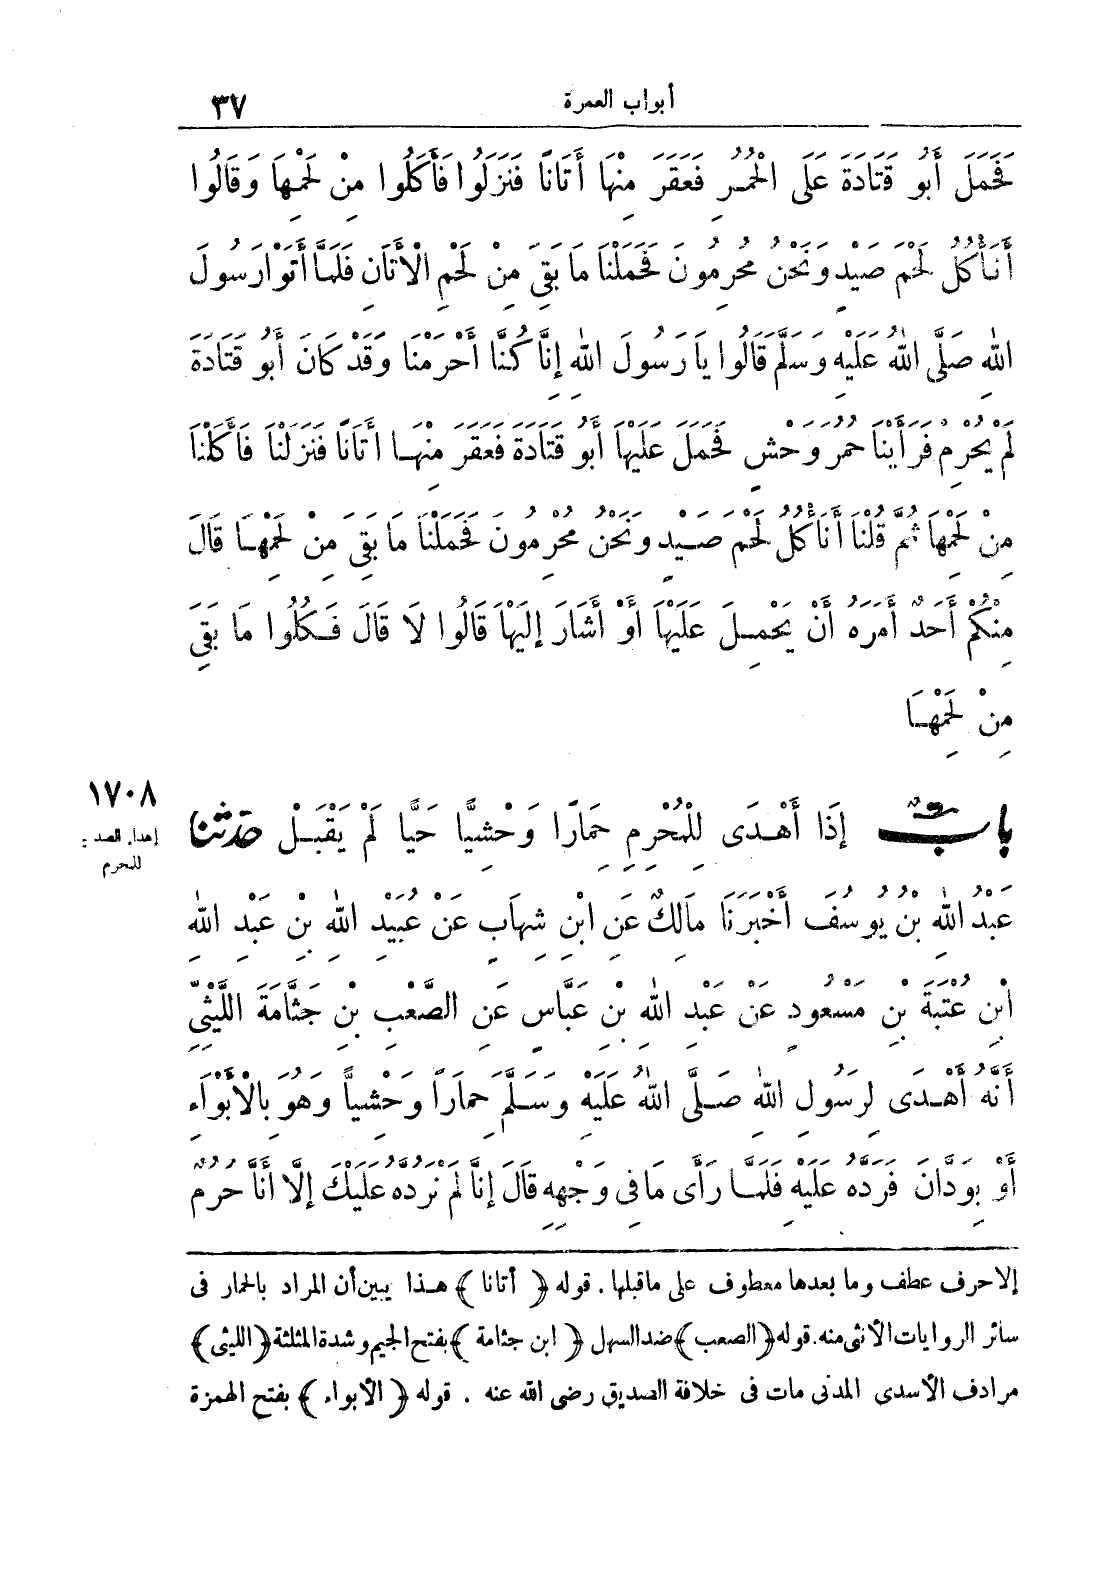 أبواب العمرة
٣٧
فَحَمَلَ أَبُو قَتَادَةَ عَلَى الْحُمُرِ فَعَقَرَ مِنْهَا أَتَانًا فَنَزَلُوا فَأَكَلُوا مِنْ لَحْمِهَا وَقَالُوا
أَنَأْكُلُ لَحْمَ صَيْدٍ وَنَحْنُ مُحْرِمُونَ فَحَمَلْنَا مَا بَقِيَ مِنْ لَحْمِ الْأَتَانِ فَلَمَّا أَتَوْا رَسُولَ
اللهِ صَلَّى اللهُ عَلَيْهِ وَسَلَّمَ قَالُوا يَا رَسُولَ اللهِ إِنَّا كُنَّا أَحْرَمْنَا وَقَدْ كَانَ أَبُو قَتَادَةَ
لَمْ يُحْرِمْ فَرَأَيْنَا حُمُرَ وَحْشٍ فَحَمَلَ عَلَيْهَا أَبُو قَتَادَةَ فَعَقَرَ مِنْهَا أَتَانًا فَنَزَلْنَا فَأَكَلْنَا
مِنْ لَحْمِهَا ثُمَّ قُلْنَا أَنَأْكُلُ لَحْمَ صَيْدٍ وَنَحْنُ مُحْرِمُونَ فَحَمَلْنَا مَا بَقِيَ مِنْ لَحْمِهَا قَالَ
مِنْكُمْ أَحَدٌ أَمَرَهُ أَنْ يَحْمِلَ عَلَيْهَا أَوْ أَشَارَ إِلَيْهَا قَالُوا لَا قَالَ فَكُلُوا مَا بَقِيَ
مِنْ لَحْمِهَا
١٧٠٨
إهداء الصيد
للمحرم
بَابٌ إِذَا أَهْدَى لِلْمُحْرِمِ حِمَارًا وَحْشِيًّا حَيًّا لَمْ يَقْبَلْ حَدَّثَنَا
عَبْدُ اللهِ بْنُ يُوسُفَ أَخْبَرَنَا مَالِكٌ عَنِ ابْنِ شِهَابٍ عَنْ عُبَيْدِ اللهِ بْنِ عَبْدِ اللهِ
ابْنِ عُتْبَةَ بْنِ مَسْعُودٍ عَنْ عَبْدِ اللهِ بْنِ عَبَّاسٍ عَنِ الصَّعْبِ بْنِ جَثَّامَةَ اللَّيْثِيِّ
أَنَّهُ أَهْدَى لِرَسُولِ اللهِ صَلَّى اللهُ عَلَيْهِ وَسَلَّمَ حِمَارًا وَحْشِيًّا وَهُوَ بِالْأَبْوَاءِ
أَوْ بِوَدَّانَ فَرَدَّهُ عَلَيْهِ فَلَمَّا رَأَى مَا فِي وَجْهِهِ قَالَ إِنَّا لَمْ نَرُدَّهُ عَلَيْكَ إِلَّا أَنَّا حُرُمٌ
إلا حرف عطف وما بعدها معطوف على ما قبلها. قوله ﴿أتانا﴾ هذا يبين أن المراد بالحمار فى
سائر الروايات الأنثى منه. قوله ﴿الصعب﴾ ضد السهل ﴿ابن جثامة﴾ بفتح الجيم وشدة المثلثة ﴿الليثى﴾
مرادف الأسدى المدنى مات فى خلافة الصديق رضى الله عنه . قوله ﴿الأبواء﴾ بفتح الهمزة